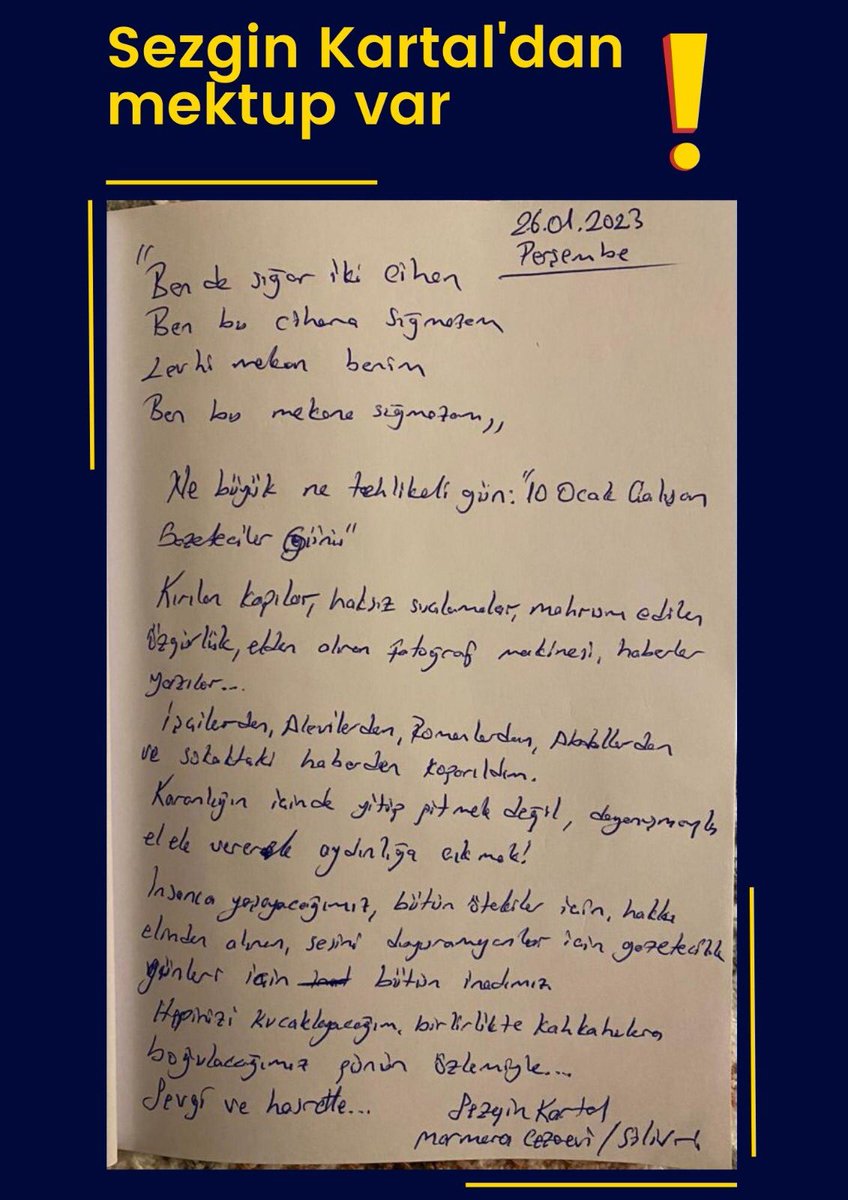 Sezgin Kartal'dan
mektup var
!
26.01.2023
Perşembe
"Ben de sığar iki cihan
Ben bu cihana sığmazam
Levhi mekan benim
Ben bu mekana sığmazam,,
Ne büyük ne tehlikeli gün: "10 Ocak Çalışan
Gazeteciler Günü"
Kırılan kapılar, haksız suçlamalar, mahrum edilen
özgürlük, elden alınan fotoğraf makinesi, haberler
yazılar...
İşçilerden, Alevilerden, Romanlardan, Abdallardan
ve sokaktaki haberden koparıldım.
Karanlığın içinde yitip gitmek değil, dayanışmayla
el ele vererek aydınlığa çıkmak!
İnsanca yaşayacağımız, bütün ötekiler için, hakkı
elinden alınan, sesini duyuramayanlar için gazetecilik
günleri için bütün inadımız
Hepinizi kucaklayacağım, birlirlikte kahkahalara
boğulacağımız günün özlemiyle...
Sevgi ve hasretle...
Sezgin Kartal
Marmara Cezaevi / Silivri